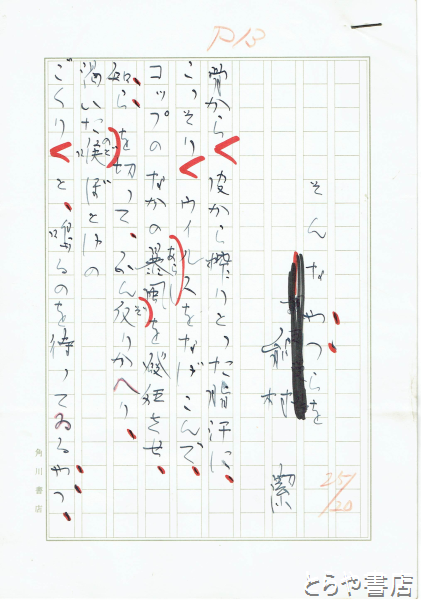 P13
そんなやつらを
村 潔
骨から皮から搾りとった脂汗に、
こっそりウイルスをなげこんで、
コップのなかの暴風を発狂させ、
あらし
知らを切って、ふん反りかへり、
ぞ
渇いた喉ぼとけの
のど
ごくりと、鳴るのを待ってゐるやつ、
25/20
角川書店
とらや書店